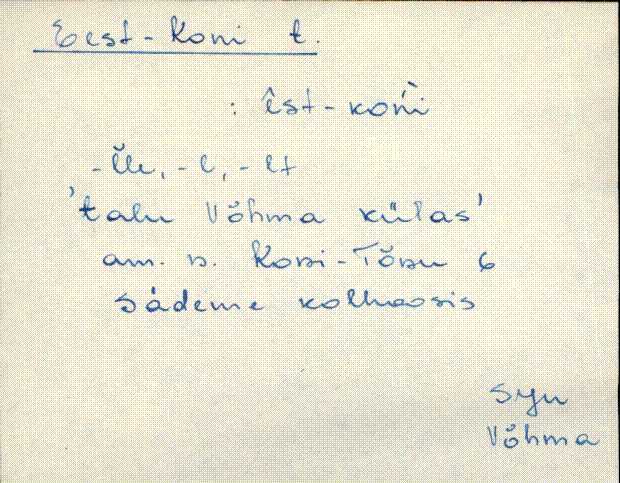 Eest-Koni t.
: êst-końi
-l̆le, -l, -lt
'talu Võhma külas'
am. n. Kosi-Tõnu 6
Sädeme kolhoosis
Syn
Võhma